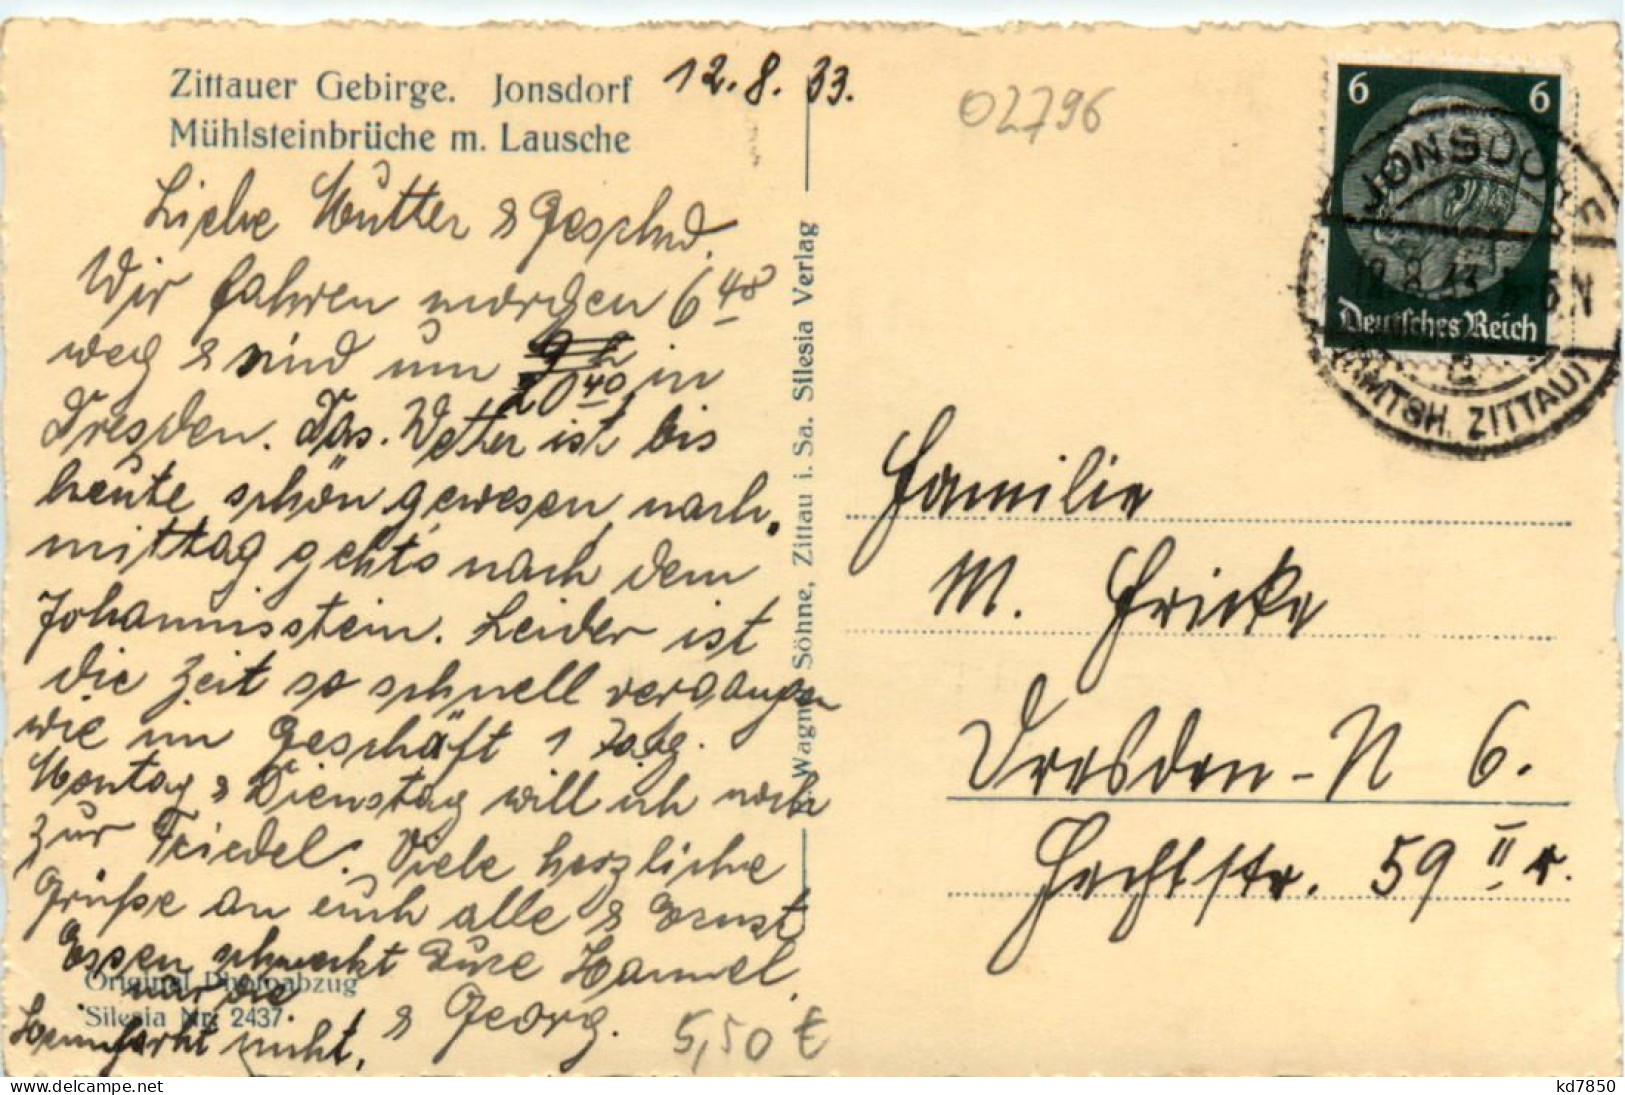 Zittauer Gebirge. Jonsdorf 12.8.33.
Mühlsteinbrüche m. Lausche
02796
Liebe Mutter & Geschw.
Wir fahren morgen 6 48
weg & sind um 20 40 in
Dresden. Das. Wetter ist bis
heute schön gewesen, nach-
mittag gehts nach dem
Johannisstein. Leider ist
die Zeit so schnell vergangen
wie im Geschäft 1 Tag.
Montag & Dienstag will ich noch
zur Friedel. Viele herzliche
Grüße an euch alle & Ernst
Essen schmeckt Eure Hannel
nur die
Heimfahrt nicht. & Georg.
Original Photoabzug
Silesia Nr. 2437.
5,50 €
Wagner Söhne, Zittau i. Sa. Silesia Verlag
6 6
Deutsches Reich
JONSDORF
12.8.33 5-6 N
(AMTSH. ZITTAU)
Familie
M. Fricke
Dresden-N 6.
Hechtstr. 59 II r.
kd7850